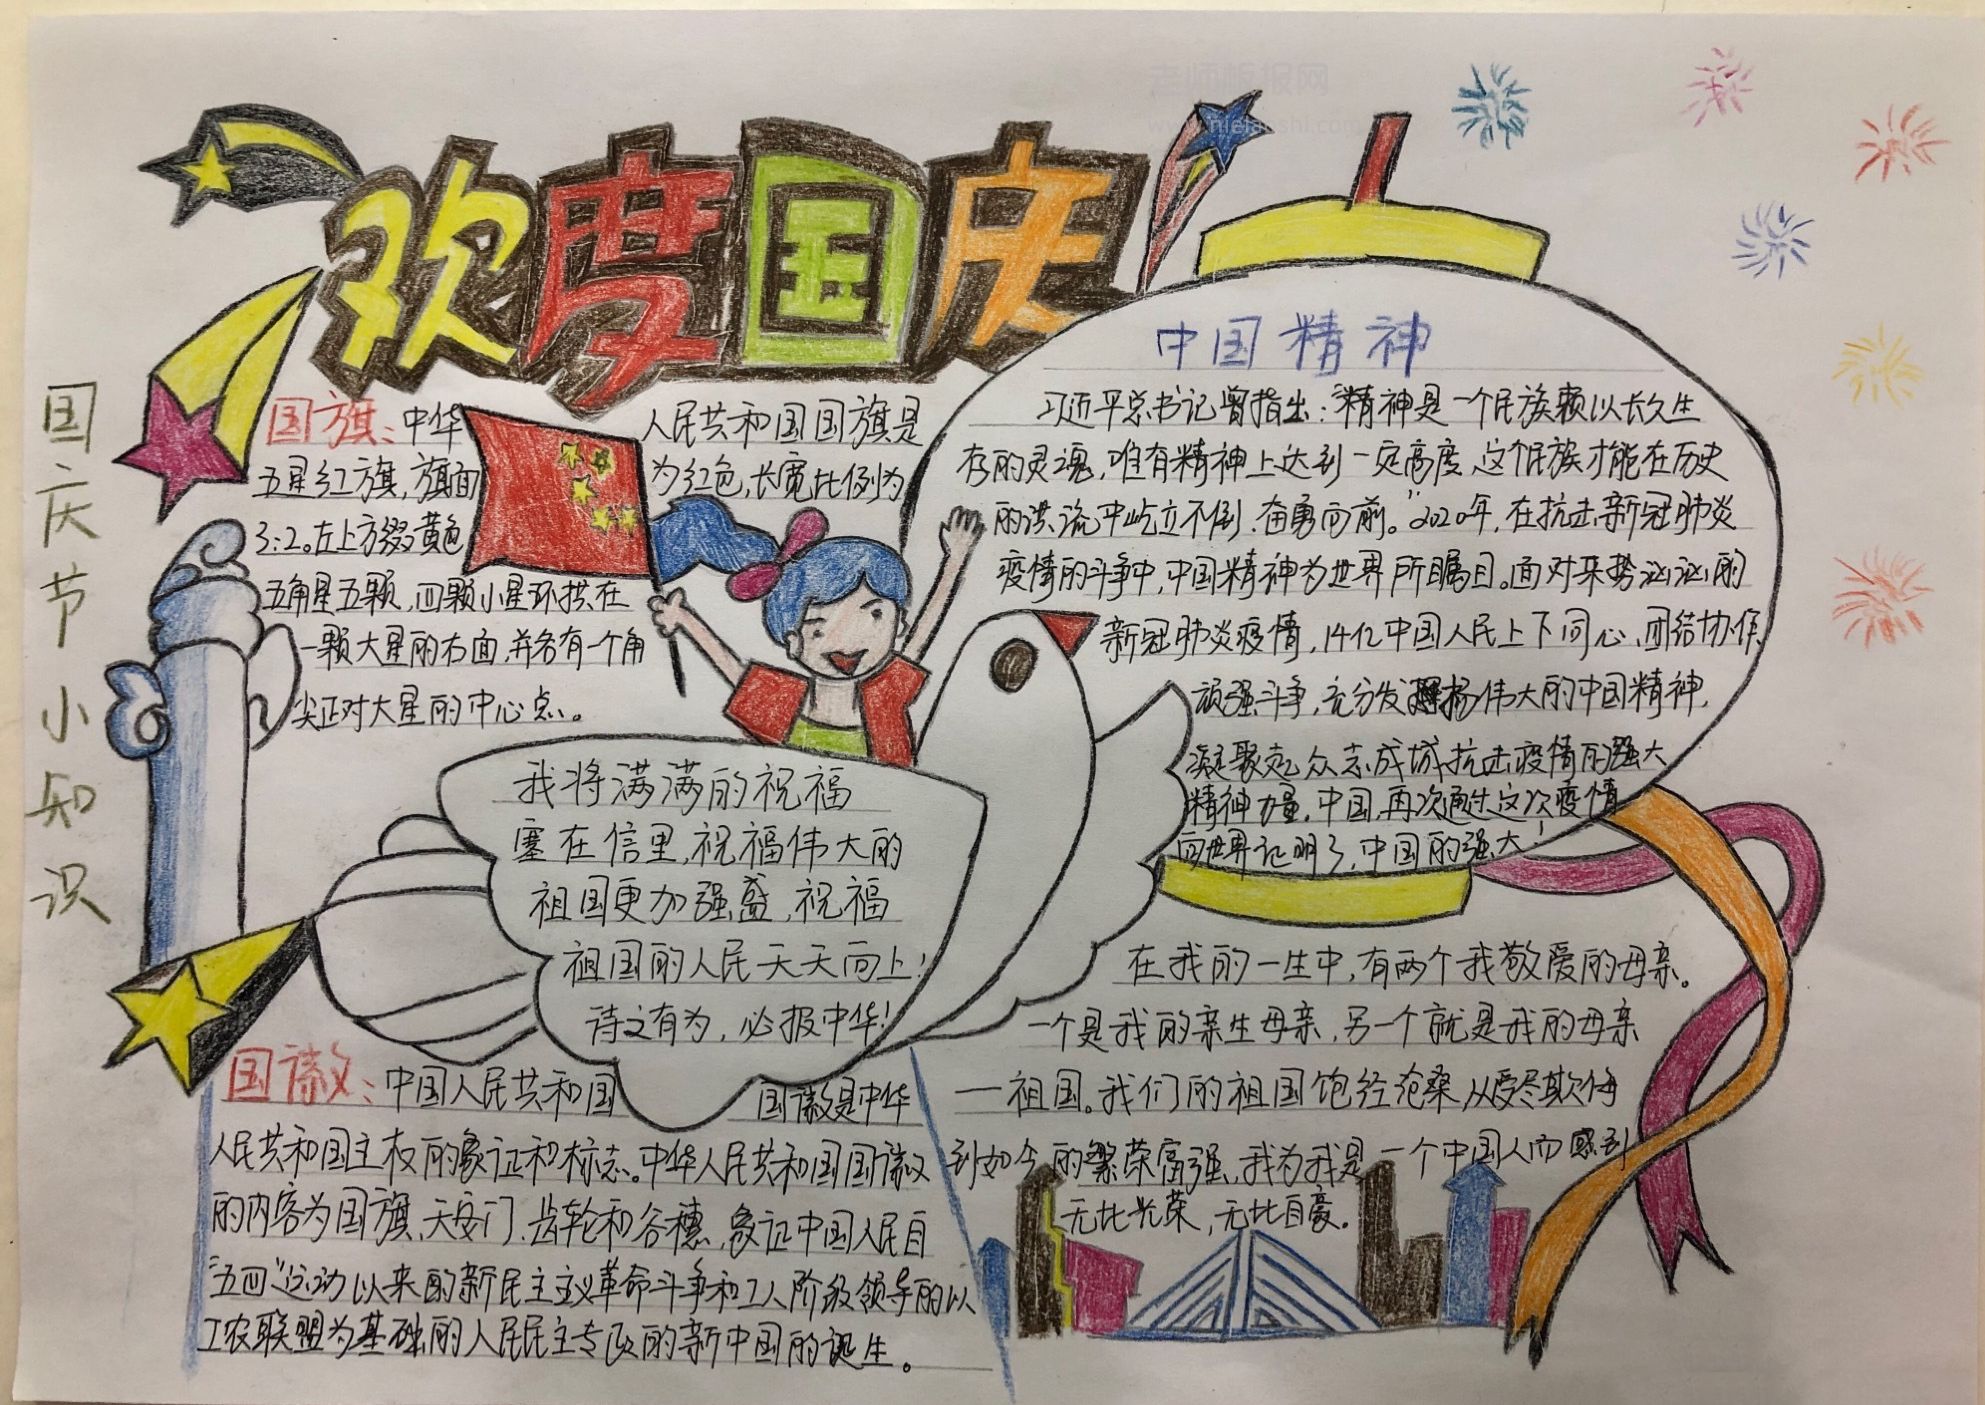 老师板报网
欢度国庆
国庆节小知识
国旗:中华人民共和国国旗是
五星红旗,旗面为红色,长宽比例为
3:2。左上方缀黄色
五角星五颗,四颗小星环拱在
一颗大星的右面,并各有一个角
尖正对大星的中心点。
中国精神
习近平总书记曾指出:“精神是一个民族赖以长久生
存的灵魂,唯有精神上达到一定高度,这个民族才能在历史
的洪流中屹立不倒、奋勇向前。”2020年,在抗击新冠肺炎
疫情的斗争中,中国精神为世界所瞩目。面对来势汹汹的
新冠肺炎疫情,14亿中国人民上下同心、团结协作、
顽强斗争,充分发扬伟大的中国精神,
凝聚起众志成城抗击疫情的强大
精神力量。中国再次通过这次疫情
向世界证明了,中国的强大!
我将满满的祝福
塞在信里,祝福伟大的
祖国更加强盛,祝福
祖国的人民天天向上!
诗文有为,必报中华!
国徽:中国人民共和国国徽是中华
人民共和国主权的象证和标志。中华人民共和国国徽
的内容为国旗、天安门、齿轮和谷穗,象证中国人民自
“五四”运动以来的新民主主义革命斗争和工人阶级领导的以
工农联盟为基础的人民民主专政的新中国的诞生。
在我的一生中,有两个我敬爱的母亲。
一个是我的亲生母亲,另一个就是我的母亲
—祖国。我们的祖国饱经沧桑从受尽欺侮
到如今的繁荣富强,我为我是一个中国人而感到
无比光荣,无比自豪。